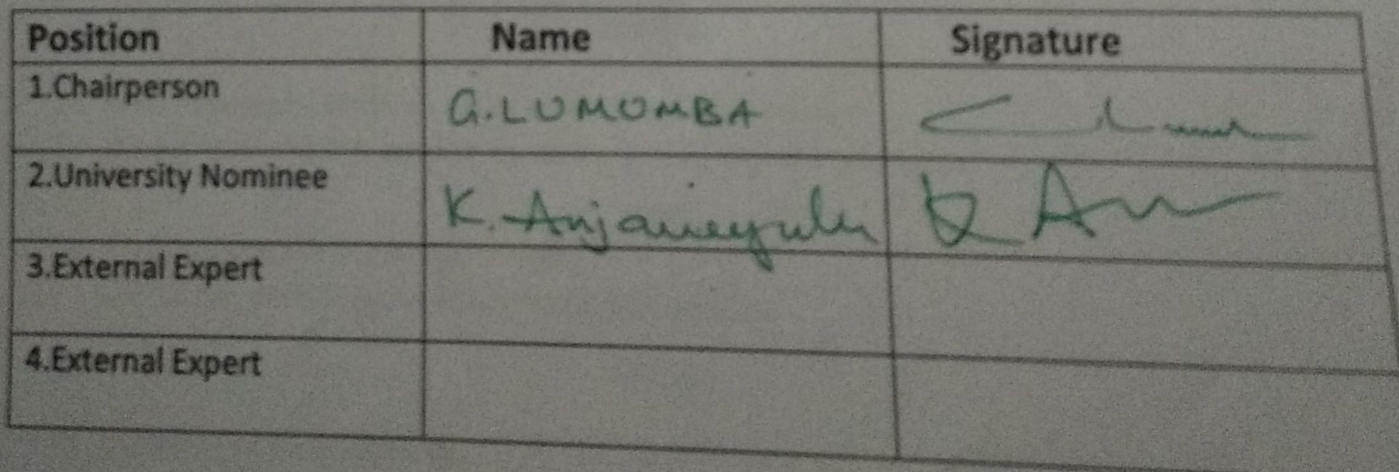 Position Name Signature
1.Chairperson G.LUMUMBA
2.University Nominee K. Anjaneyulu
3.External Expert
4.External Expert